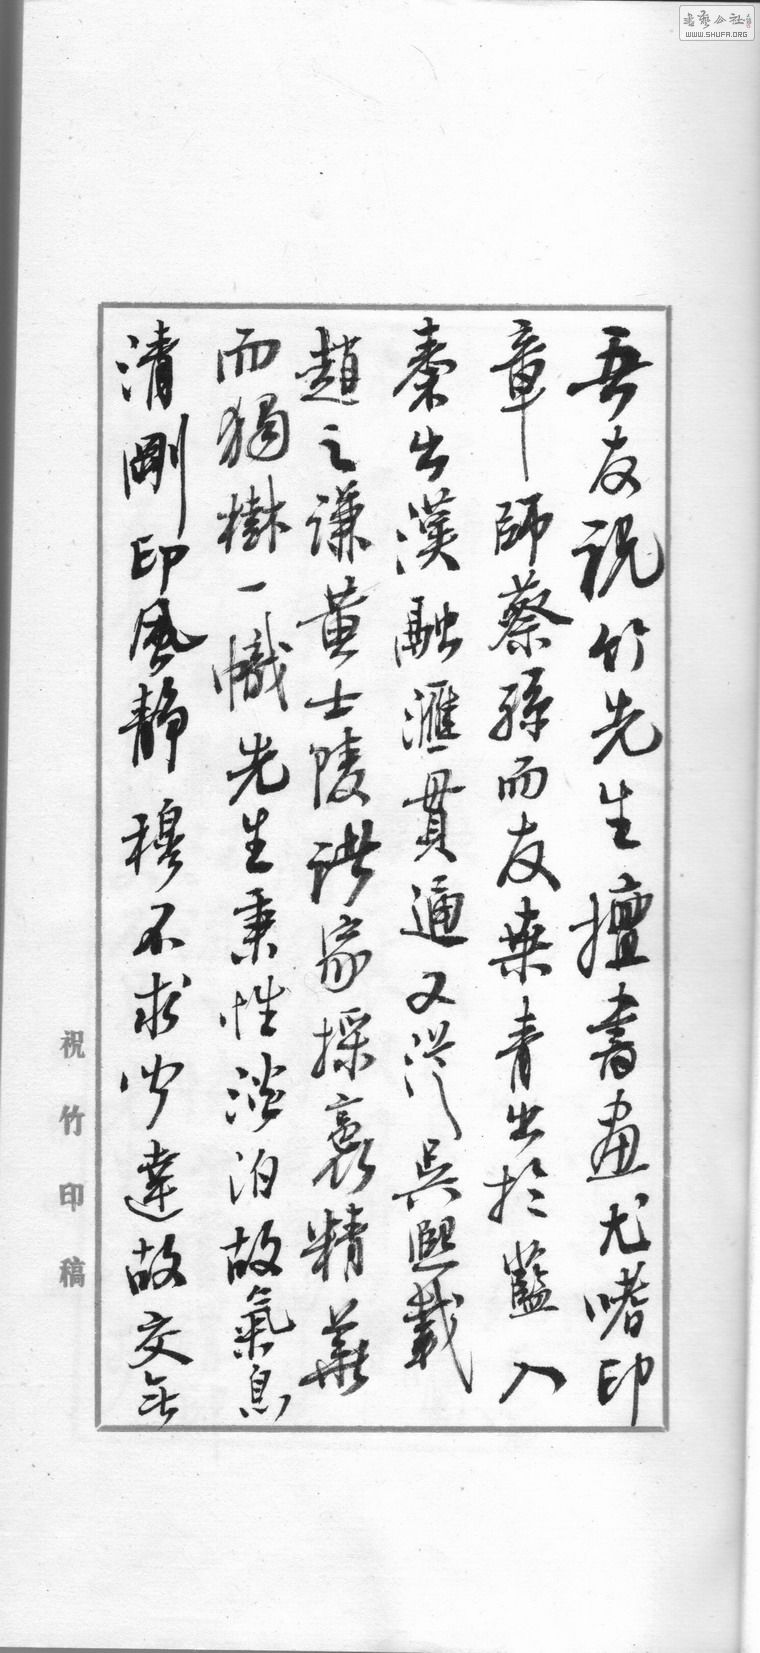 吾友祝竹先生擅書畫尤嗜印
章師蔡孫而友桑青出於藍入
秦出漢融滙貫通又從吳熙載
趙之謙黃士陵諸家採裛精華
而獨樹一幟先生秉性淡泊故氣息
清剛印風靜穆不求聞達故交無
祝竹印稿
書藝公社
WWW.SHUFA.ORG